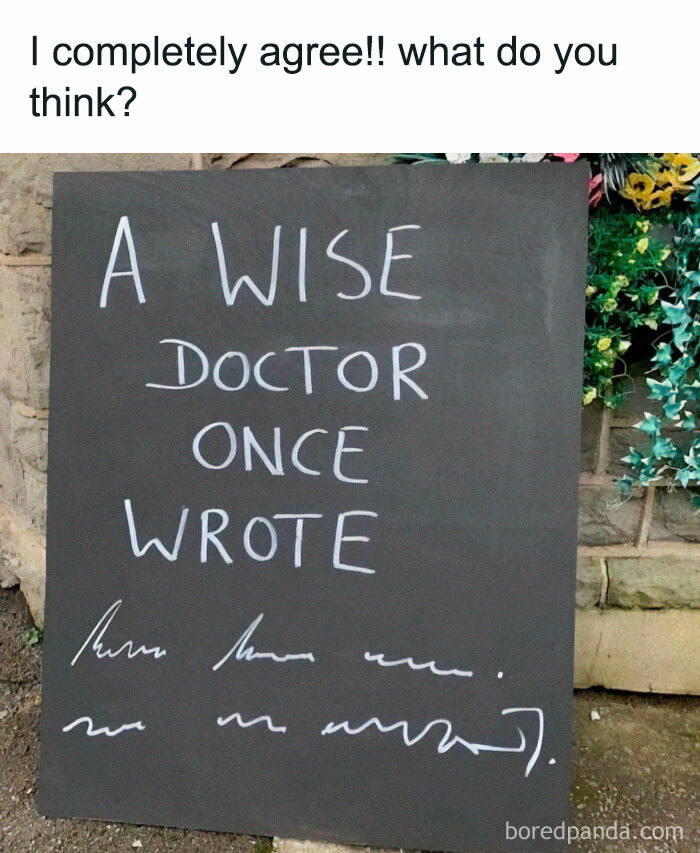 I completely agree!! what do you
think?
A WISE
DOCTOR
ONCE
WROTE
boredpanda.com